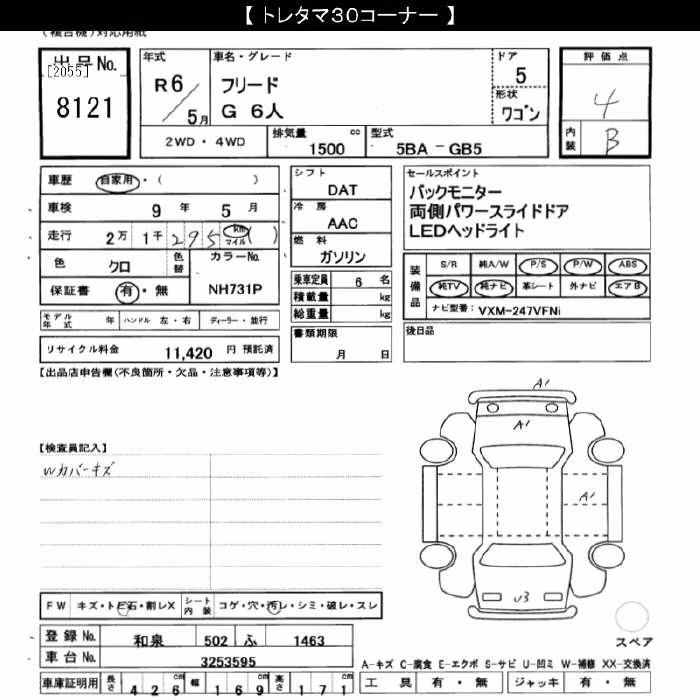 【 トレタマ30コーナー 】
(複合機)対応用紙
出品No.
[2055]
8121
年式
R6/5月
車名・グレード
フリード
G 6人
ドア
5
形状
ワゴン
評価点
4
内装
B
2WD・4WD
排気量 cc
1500
型式
5BA －GB5
車歴 自家用・( )
車検 9年 5月
走行 2万 1千 295 km マイル ( )
色 クロ 色替
カラーNo.
NH731P
保証書 有・無
シフト
DAT
冷房
AAC
燃料
ガソリン
乗車定員 6 名
積載量 kg
総重量 kg
セールスポイント
バックモニター
両側パワースライドドア
LEDヘッドライト
装備品
S/R 純A/W P/S P/W ABS
純TV 純ナビ 革シート 外ナビ エアB
ナビ型番: VXM-247VFNi
モデル年式 年 ハンドル 左・右 ディーラー・並行
リサイクル料金 11,420 円 預託済
書類期限
月 日
後日品
【出品店申告欄(不良箇所・欠品・注意事項等)】
【検査員記入】
Wカバーキズ
A1
A1
A1
U3
FW キズ・トビ石・割レX シート内装 コゲ・穴・汚レ・シミ・破レ・スレ
スペア
登録No. 和泉 502 ふ 1463
車台No. 3253595
A-キズ C-腐食 E-エクボ S-サビ U-凹ミ W-補修 XX-交換済
車庫証明用 長さ 426 cm 幅 169 cm 高さ 171 cm
工具 有・無 ジャッキ 有・無